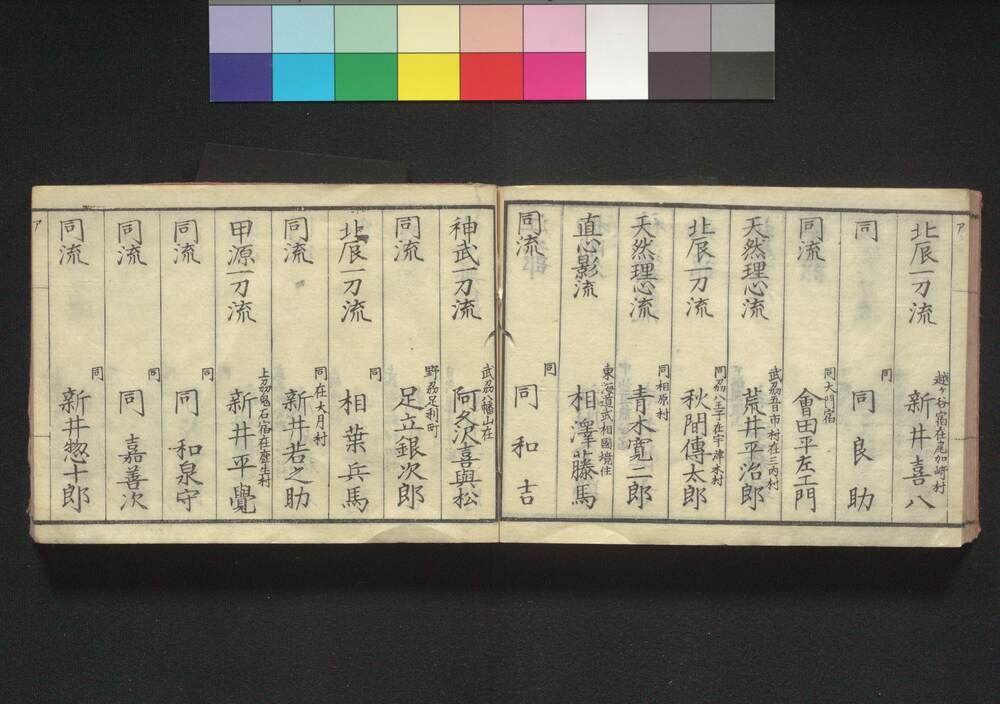 ア
北辰一刀流
越ヶ谷宿在尾加崎村
新井喜八
同
同
同良助
同流
同大門宿
會田平左エ門
天然理心流
武刕五日市村在三内村
荒井平治郎
北辰一刀流
同刕八王子在宇津木村
秋間傳太郎
天然理心流
同相原村
青木寛二郎
直心影流
東海道武相國境住
相澤藤馬
同流
同
同和吉
神武一刀流
武刕八幡山在
阿久沢喜與松
同流
野刕足利町
足立銀次郎
北辰一刀流
同
相葉兵馬
同流
同在大月村
新井若之助
甲源一刀流
上刕鬼石宿在
新井平覺
同流
同
同和泉守
同流
同
同嘉善次
同流
同
新井惣十郎
ア